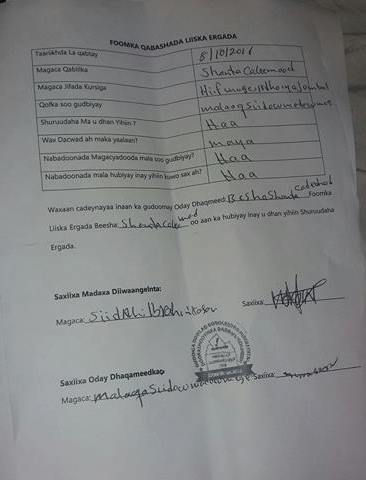 FOOMKA QABASHADA LIISKA ERGADA
Taariikhda La qabtay 8/10/2016
Magaca Qabiilka Shanta Caleemood
Magaca Jifada Kursiga
Qofka soo gudbiyay
Shuruudaha Ma u dhan Yihiin ? Haa
Wax Dacwad ah maka yaalaan? maya
Nabadoonada Magacyadooda mala soo gudbiyay? Haa
Nabadoonada mala hubiyay inay yihiin kuwo sax ah? Haa
Waxaan cadeynayaa inaan ka gudoomay Oday Dhaqmeed: Beesha Shanta caleemod Foomka
Liiska Ergada Beesha: Shanta caleemod oo aan ka hubiyay inay u dhan yihiin Shuruudaha
Ergada.
Saxiixa Madaxa Diiwaangelnta:
Magaca: Saxiixa:
Saxiixa Oday Dhaqameedka
Magaca: malaaq Saxiixa: